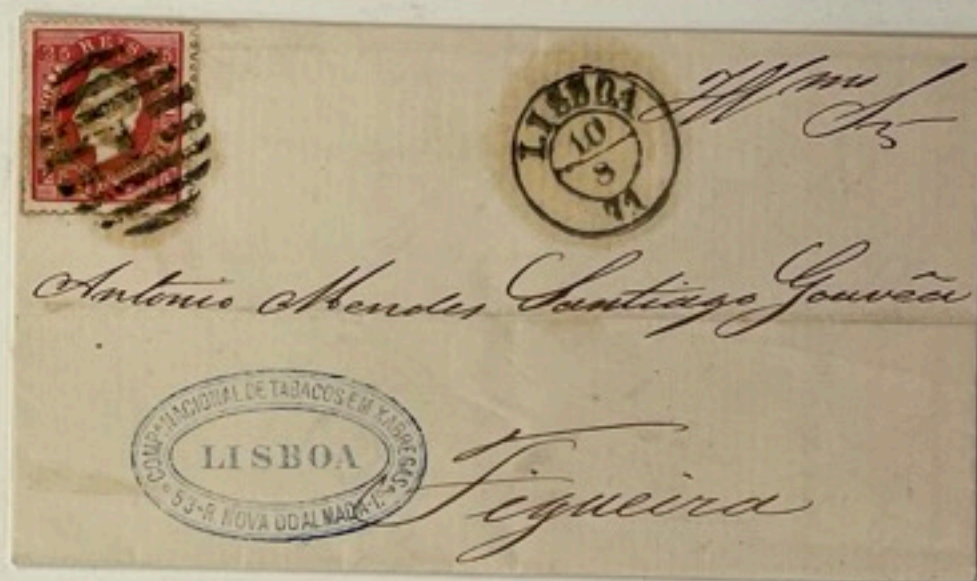 25 REIS
LISBOA
10
8
71
Illmo Sr
Antonio Mendes Santiago Gouvêa
Figueira
COMPA NACIONAL DE TABACOS EM XABREGAS
LISBOA
53-R. NOVA DO ALMADA-1º